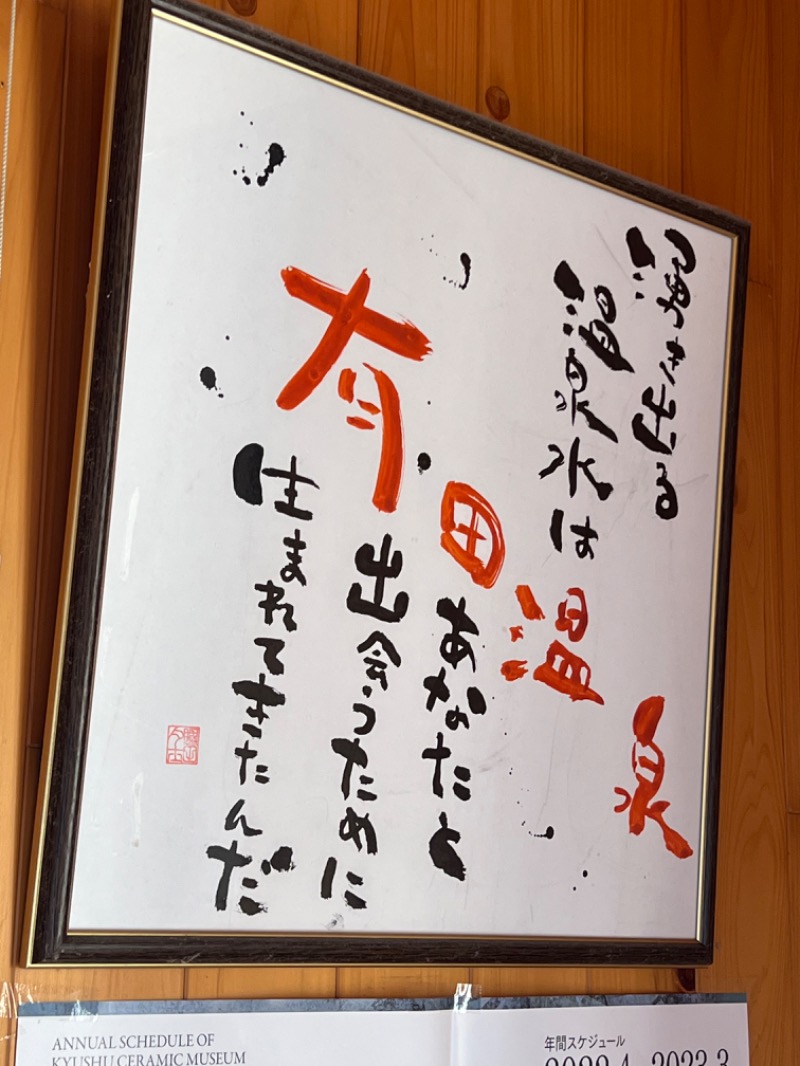 湧き出る
温泉水は
有田温泉
あなたと
出会うために
生まれてきたんだ
ANNUAL SCHEDULE OF
KYUSHU CERAMIC MUSEUM
年間スケジュール
2022.4 2023.3